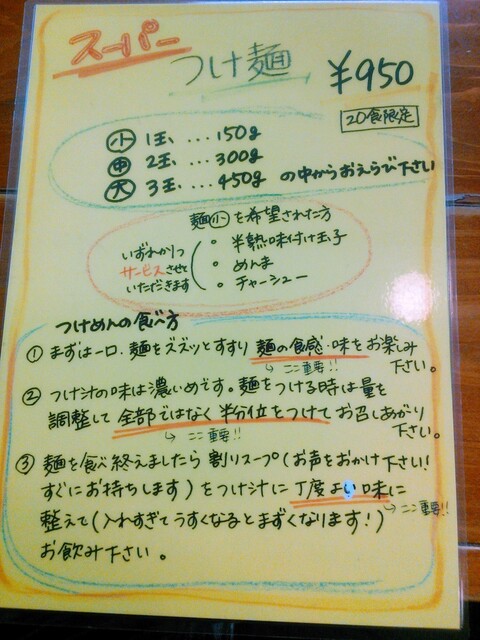 スーパー
つけ麺 ¥950
20食限定
小 1玉 ... 150g
中 2玉 ... 300g
大 3玉 ... 450g の中からおえらび下さい
麺小を希望された方
いずれか1つ
サービスさせて
いただきます
・半熟味付け玉子
・めんま
・チャーシュー
つけめんの食べ方
① まずは一口、麺をズズッとすすり 麺の食感・味をお楽しみ
下さい。
ここ重要!!
② つけ汁の味は濃いめです。麺をつける時は量を
調整して 全部ではなく半分位をつけて お召しあがり
下さい。
ここ重要!!
③ 麺を食べ終えましたら 割りスープ(お声をおかけ下さい!
すぐにお持ちします)をつけ汁に 丁度よい味に
ここ重要!!
整えて(入れすぎてうすくなるとまずくなります!)
お飲み下さい。